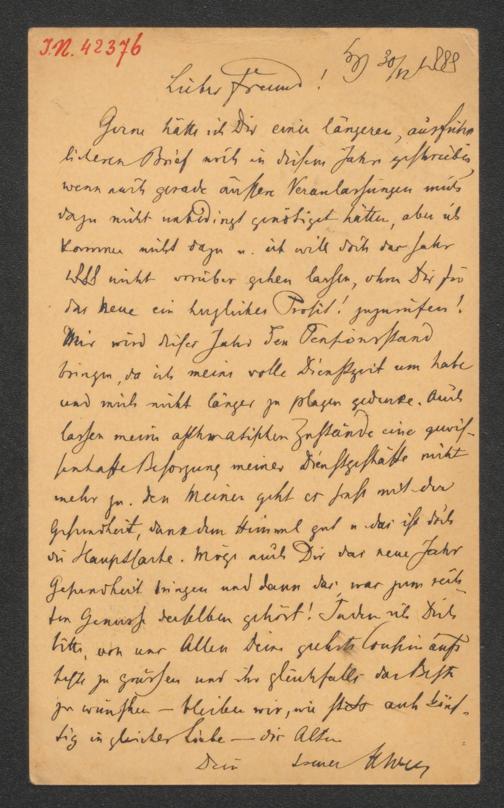 I.N. 42376
30/12 1888
Lieber Freund!
Gerne hätte ich Dir einen längeren, ausführ-
licheren Brief noch in diesem Jahre geschrieben
wenn mich gerade äußere Veranlassungen auch
dazu nicht unbedingt genötiget hätten, aber ich
komme nicht dazu u. ich will doch das Jahr
1888 nicht vorüber gehen lassen, ohne Dir für
das Neue ein herzliches Prosit! zuzurufen!
Mir wird dieses Jahr den Pensionsstand
bringen, da ich meine volle Dienstzeit um habe
und mich nicht länger zu plagen gedenke. Auch
lassen meine asthmatischen Zustände eine gewis-
senhafte Besorgung meiner Dienstgeschäfte nicht
mehr zu. Den Meinen geht es sonst mit der
Gesundheit, dank dem Himmel gut u. das ist doch
die Hauptsache. Möge auch Dir das neue Jahr
Gesundheit bringen und dann das was zum rech-
ten Genusse derselben gehört! Indem ich Dich
bitte, von uns Allen Deine geehrte Cousine aufs
beste zu grüßen und ihr gleichfalls das Beste
zu wünschen – bleiben wir, wie stets auch künf-
tig in gleicher Liebe – die Alten
Dein